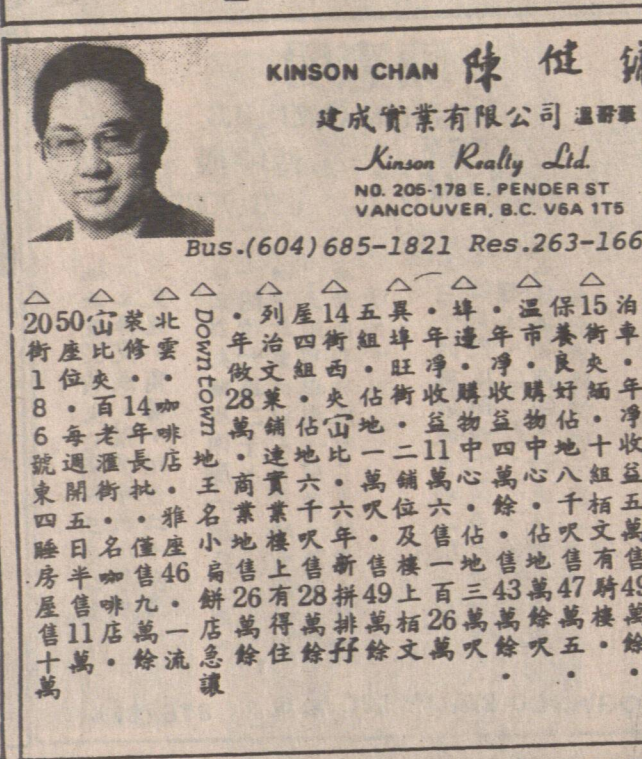 KINSON CHAN 陳健
建成實業有限公司 溫哥華
Kinson Realty Ltd.
NO. 205-178 E. PENDER ST
VANCOUVER, B.C. V6A 1T5
Bus.(604)685-1821 Res.263-166
泊車．年淨收益五萬售49萬餘．
△15街夾緬十組栢文有騎樓
保養良好佔地八千呎售47萬五．
△溫市購物中心．佔地萬餘呎
．年淨收益四萬餘．售43萬餘．
△埠邊購物中心．佔地三萬呎
．年淨收益11萬六．售一百26萬
△異埠旺街．二鋪位及樓上栢文
五組．佔地一萬呎售49萬餘
△14街西夾㝉比．六年新拼排孖
屋四組．佔地六千呎售28萬餘
△列治文菓鋪連實業樓上有得住
．年做28萬．商業地售26萬餘
△Downtown地王名小扁餅店急讓
△北雲．咖啡店．雅座46．一流
裝修．14年長批．僅售九萬餘
△㝉比夾百老滙街．名咖啡店．
50座位．每週開五日半售11萬
△20街186號東四睡房屋售十萬